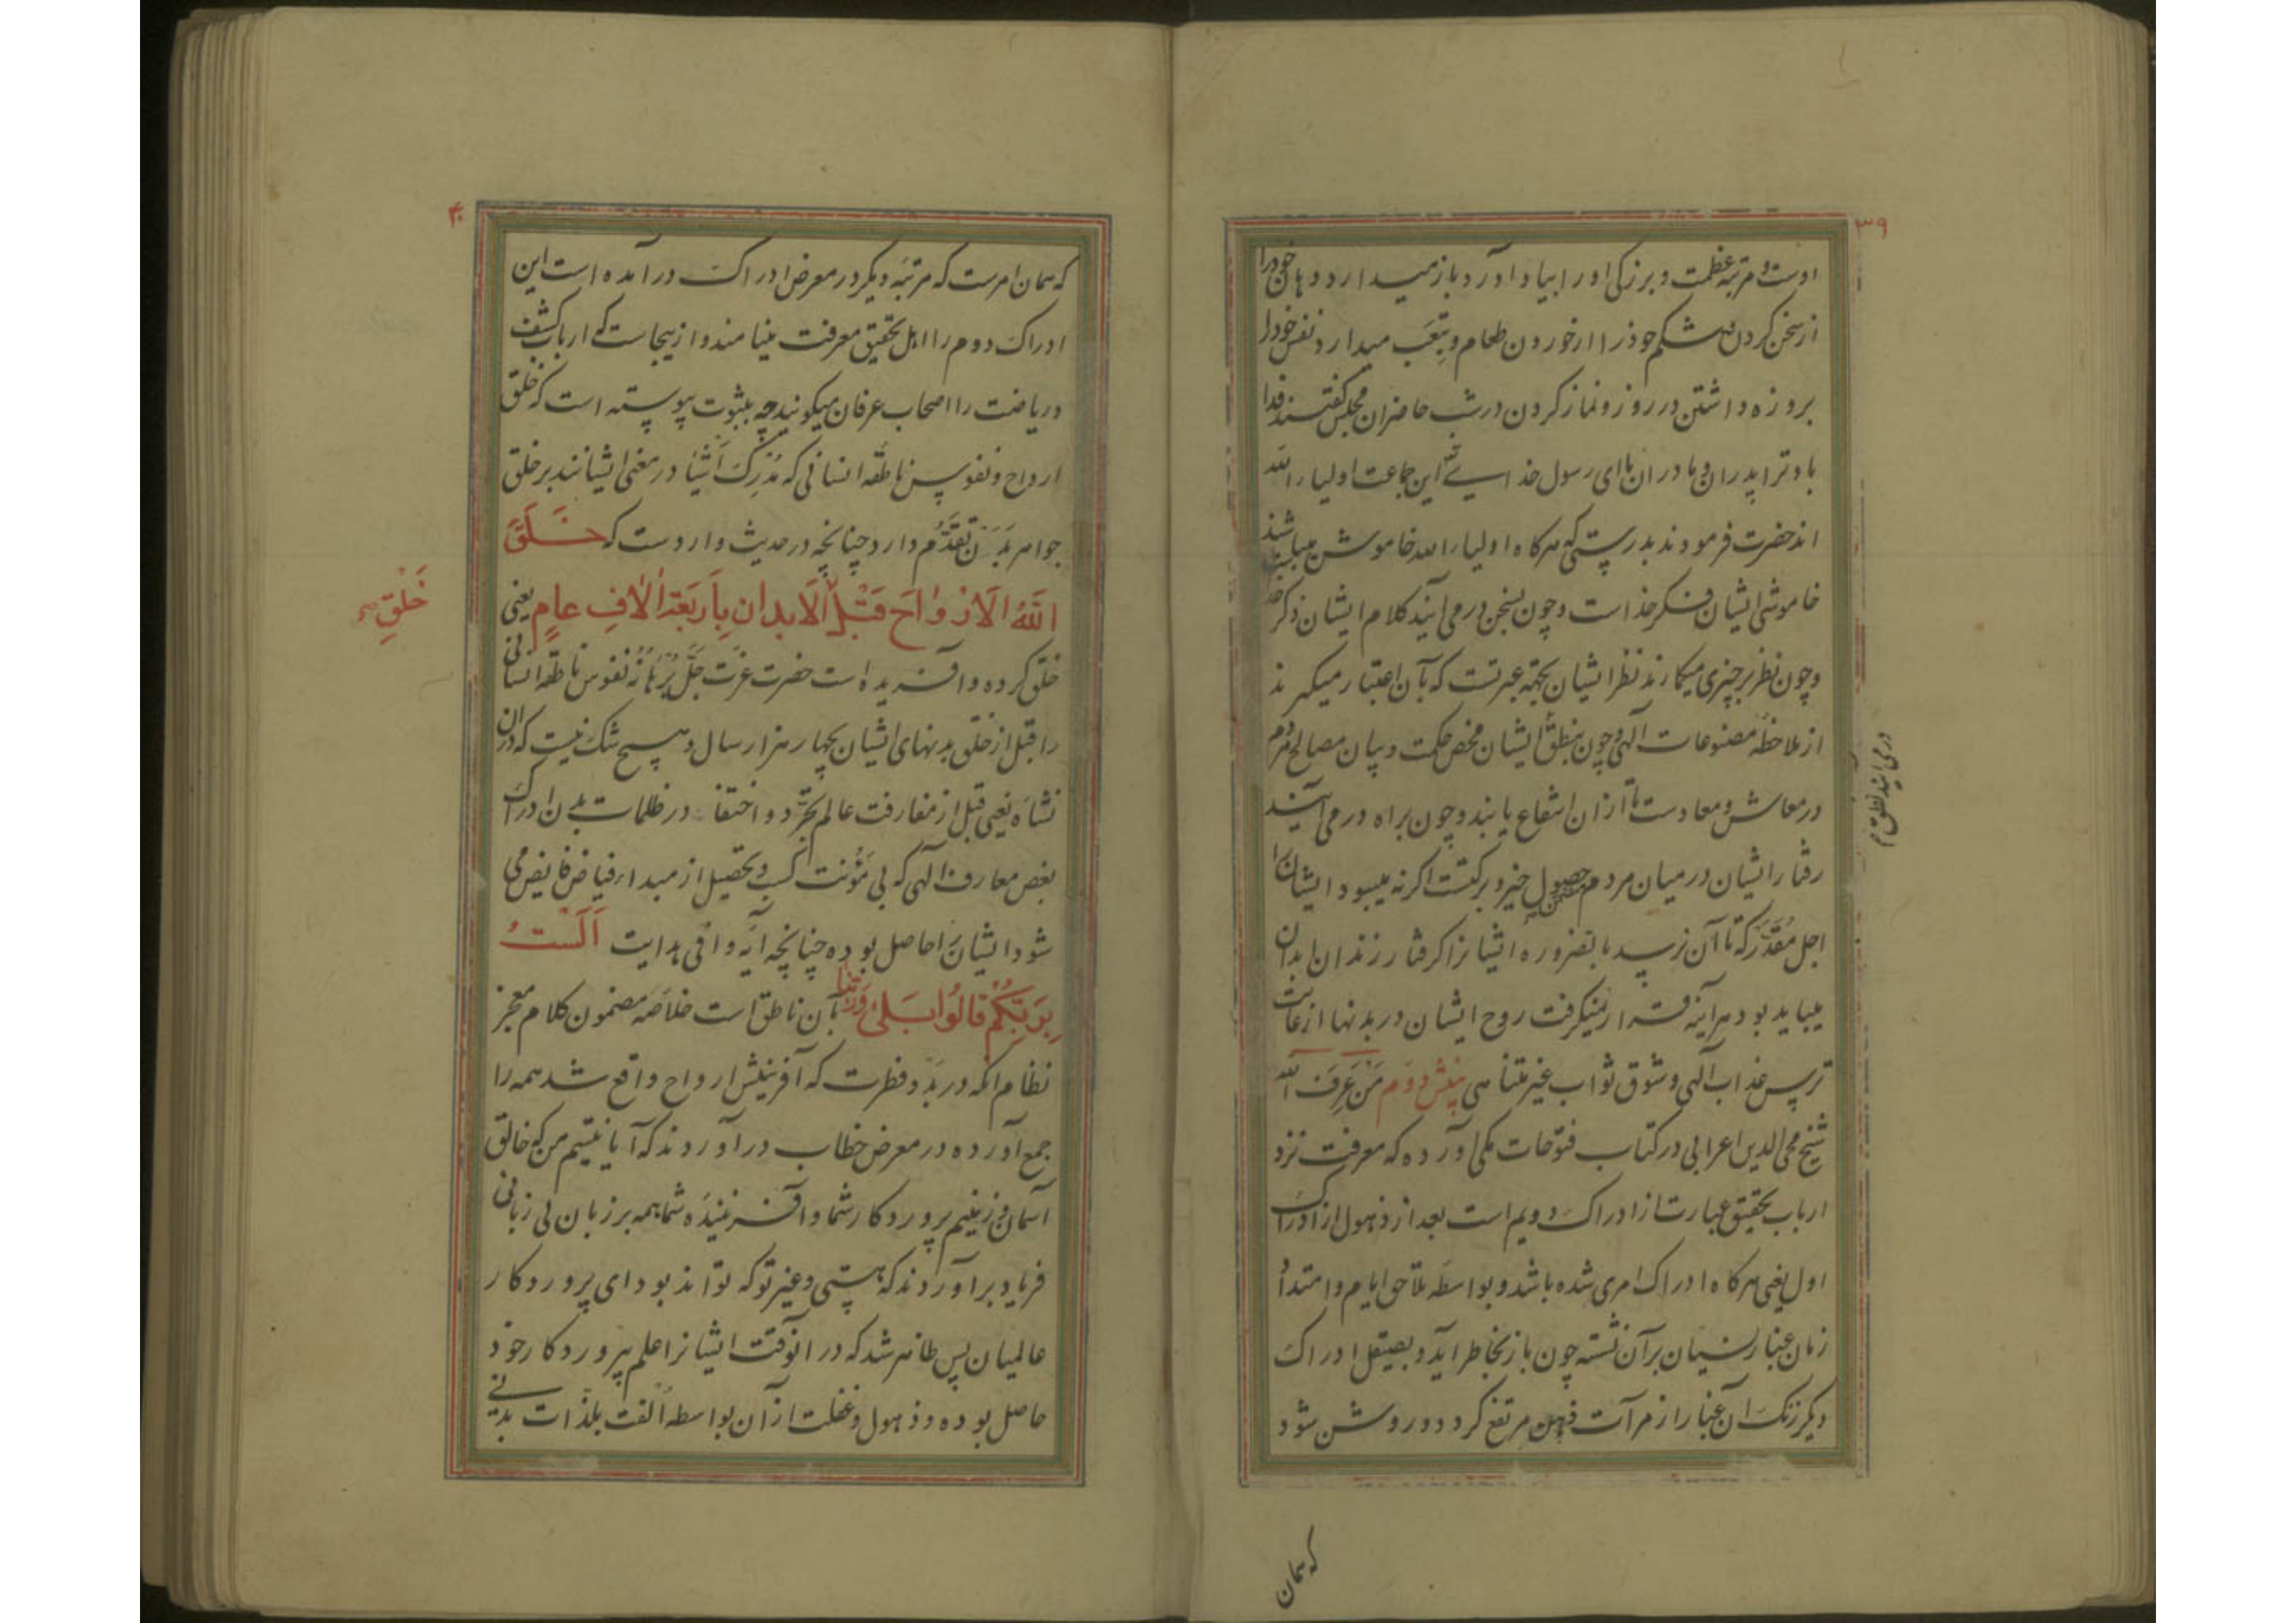 ۳۹
اوست و مرتبه عظمت و بزرکی او را بیاد آورد باز میدارد دهان خود را
از سخن کردن و شکم خود را از خوردن طعام و بتعب میدارد نفس خود را
بروزه داشتن در روز و نماز کردن در شب حاضران مجلس گفتند فدا
باد ترا پدران و مادران ما ای رسول خدا این جماعت اولیاء الله
اند حضرت فرمودند بدرستی که هرکاه اولیاء الله خاموش میباشند
خاموشی ایشان فکر خداست و چون بسخن در می آیند کلام ایشان ذکر خدا
و چون نظر بر چیزی میکمارند نظر ایشان بجهة عبرتست که بآن اعتبار میگیرند
از ملاحظه مصنوعات آلهی و چون بنطق ایشان محض حکمت و بیان مصالح مردم
در می آیند نطق
در معاش و معادست تا از ان انتفاع یابند و چون براه در می آیند
رفتار ایشان در میان مردم حصول خیر و برکتست اکر نه میبود ایشان را
اجل مقدر که تا آن نرسد بالضروره ایشانرا کرفتار زندان ابدان
میباید بود هر آینه قرار نمیکرفت روح ایشان در بدنها از غایت
ترس عذاب آلهی و شوق ثواب غیر متناهی بینش دوم من عرف الله
شیخ محی الدین اعرابی در کتاب فتوحات مکی آورده که معرفت نزد
ارباب تحقیق عبارتست از ادراک دویم است بعد از ذهول از ادراک
اول یعنی هرکاه ادراک امری شده باشد و بواسطه تلاحق ایام و امتداد
زمان غبار نسیان بر آن نشسته چون باز بخاطر آید و بصیقل ادراک
دیکر زنک آن غبار از مرآت ذهن مرتفع کردد و روشن شود
که همان
۴۰
که همان امرست که مرتبه دیکر در معرض ادراک در آمده است این
ادراک دوم را اهل تحقیق معرفت مینامند و از ینجاست که ارباب کشف
و ریاضت را اصحاب عرفان میکویند چه بثبوت پیوسته است که خلق
ارواح و نفوس ناطقه انسانی که مدرک اشیا در معنی ایشانند بر خلق
جواهر بدن تقدم دارد چنانچه در حدیث واردست که خَلَقَ
اللّٰهُ الْاَرْوٰاحَ قَبْلَ الْاَبدانِ بِاَربَعَةِ اٰلافِ عامٍ یعنی
خَلْقِ
خلق کرده و آفریده است حضرت عزت جل برهانه نفوس ناطقه انسانی
را قبل از خلق بدنهای ایشان بچهار هزار سال و هیچ شک نیست که در آن
نشاه یعنی قبل از مفارقت عالم تجرد و اختفا در ظلمات بدن ادراک
بعض معارف آلهی که بی مؤنت کسب و تحصیل از مبداء فیاض فایض می
شود ایشان را حاصل بوده چنانچه آیه وافی هدایت اَلَسْتُ
بِرَبِّکُمْ قٰالُوا بَلٰی رَبَّنا بآن ناطق است خلاصه مضمون کلام معجز
نظام انکه در بدو فطرت که آفرینش ارواح واقع شد همه را
جمع آورده در معرض خطاب در آوردند که آیا نیستیم من که خالق
آسمان و زمینم پروردکار شما و آفریننده شما همه بر زبان بی زبانی
فریاد بر آوردند که هستی و غیر تو که تواند بود ای پروردکار
عالمیان پس ظاهر شد که در انوقت ایشانرا علم پروردکار خود
حاصل بوده و ذهول و غفلت از آن بواسطه الفت بلذات بدنی